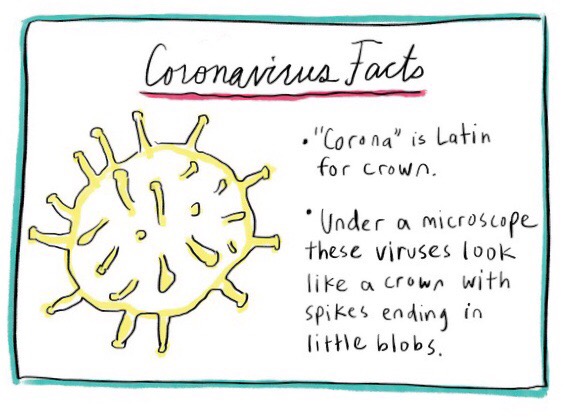 Coronavirus Facts
• "Corona" is Latin
for crown.
• Under a microscope
these viruses look
like a crown with
spikes ending in
little blobs.